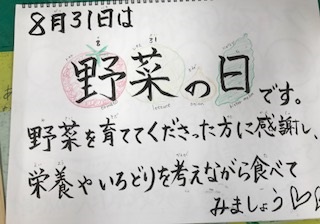 8月31日は
野菜の日です。
野菜を育ててくださった方に感謝し、
栄養やいろどりを考えながら食べて
みましょう♡♡